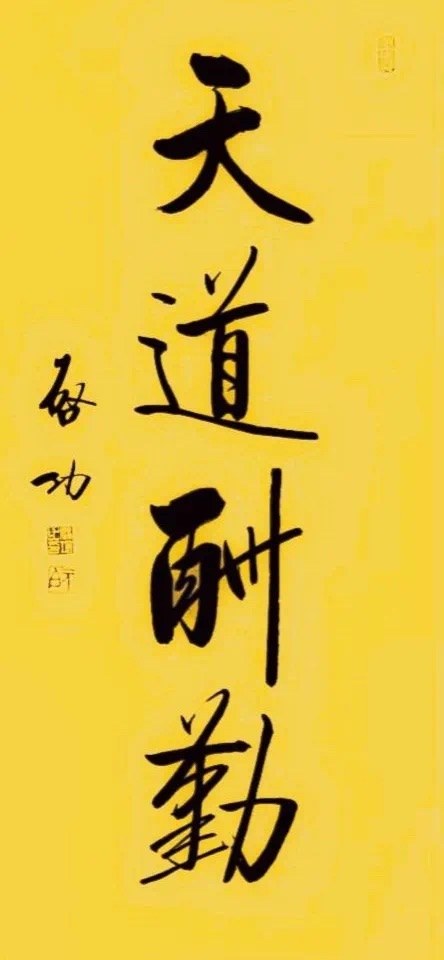 天道酬勤
启功